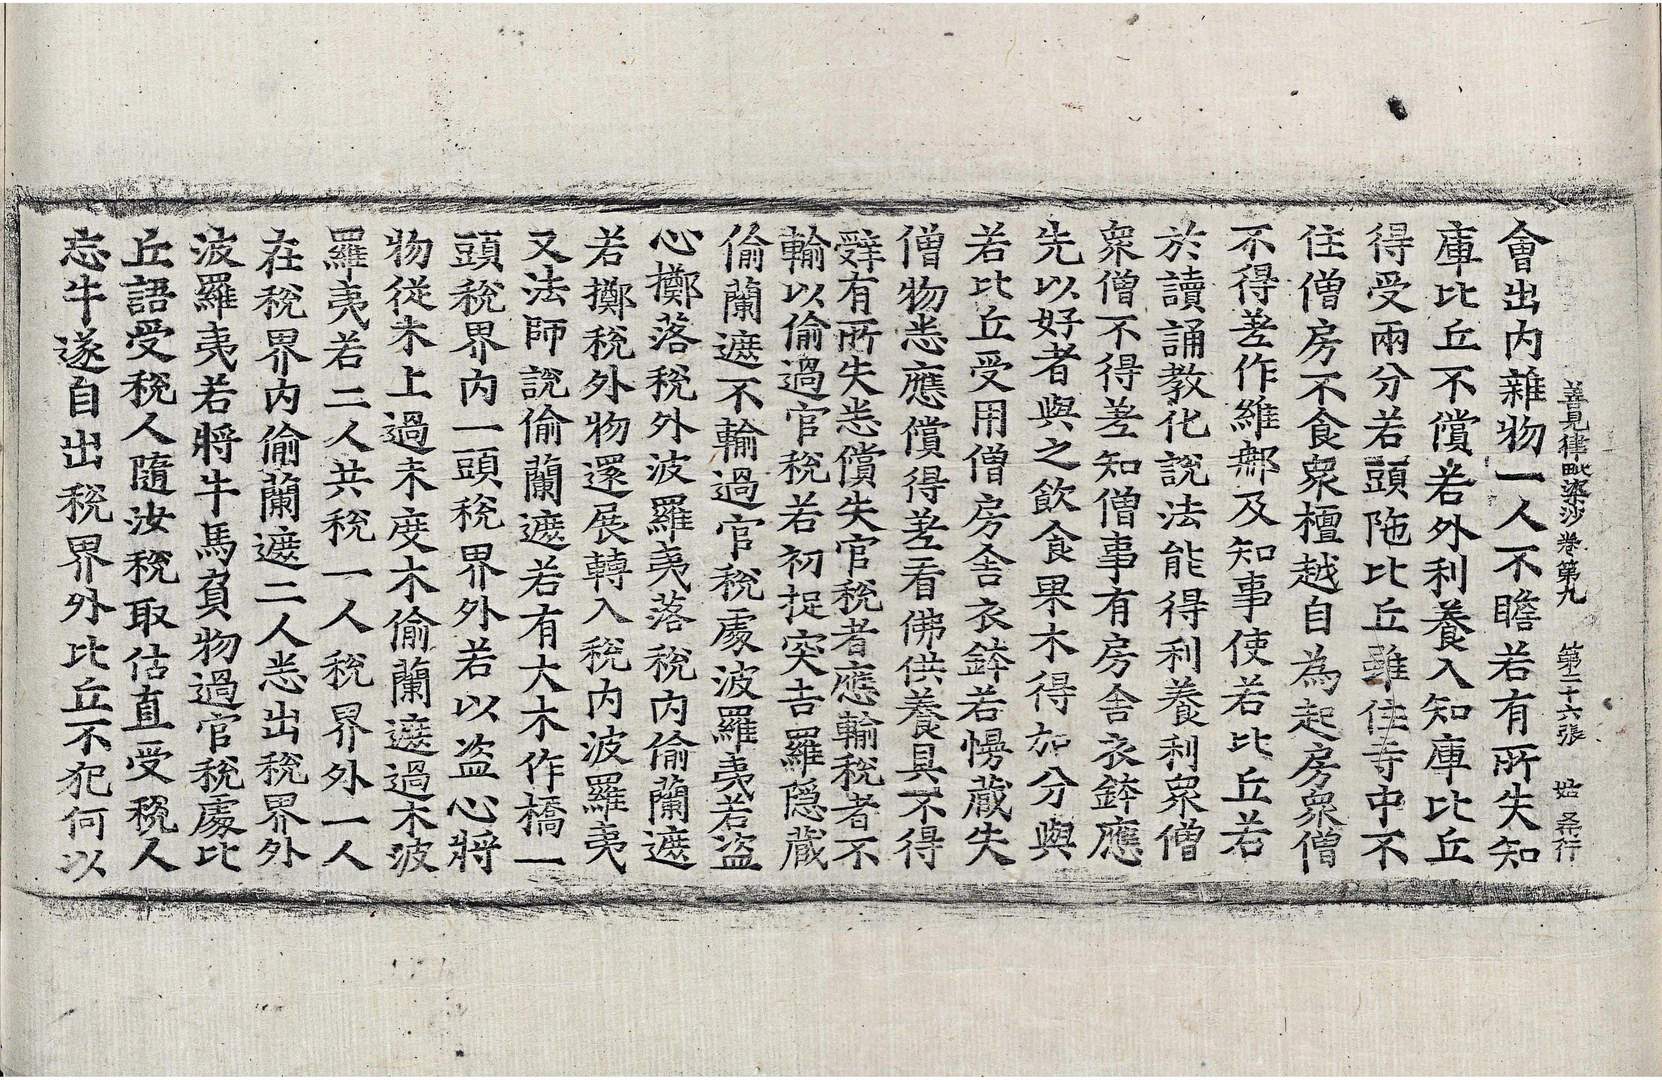 善見律毗婆沙卷第九 第二十六張 姑
會出內雜物一人不瞻若有所失知
庫比丘不償若外利養入知庫比丘
得受兩分若頭陁比丘雖住寺中不
住僧房不食衆檀越自為起房衆僧
不得差作維那及知事使若比丘若
於讀誦教化說法能得利養利衆僧
衆僧不得差知僧事有房舍衣鉢應
先以好者與之飲食果木得加分與
若比丘受用僧房舍衣鉢若慢藏失
僧物悉應償得差看佛供養具不得
辝有所失悉償失官稅者應輸稅者不
輸以偷過官稅若初捉突吉羅隱藏
偷蘭遮不輸過官稅處波羅夷若盜
心擲落稅外波羅夷落稅內偷蘭遮
若擲稅外物還展轉入稅內波羅夷
又法師說偷蘭遮若有大木作橋一
頭稅界內一頭稅界外若以盜心將
物從木上過未度木偷蘭遮過木波
羅夷若二人共稅一人稅界外一人
在稅界內偷蘭遮二人悉出稅界外
波羅夷若將牛馬負物過官稅處比
丘語受稅人隨汝稅取估直受稅人
忘牛遂自出稅界外比丘不犯何以